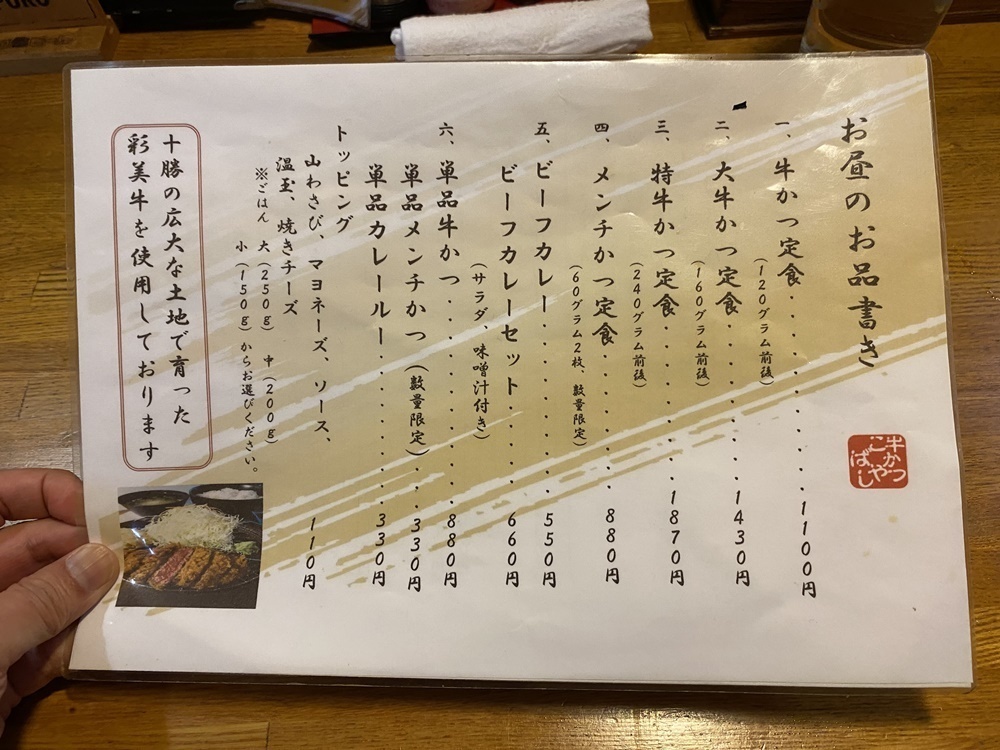 お昼のお品書き
牛かつ
こやばし
一、牛かつ定食・・・・・・・・・・1100円
(120グラム前後)
二、大牛かつ定食・・・・・・・・1430円
(160グラム前後)
三、特牛かつ定食・・・・・・・・1870円
(240グラム前後)
四、メンチかつ定食・・・・・・・880円
(60グラム2枚、数量限定)
五、ビーフカレー・・・・・・・・550円
ビーフカレーセット・・・・・660円
(サラダ、味噌汁付き)
六、単品牛かつ・・・・・・・・・880円
単品メンチかつ(数量限定)・・330円
単品カレールー・・・・・・・330円
トッピング
山わさび、マヨネーズ、ソース、
温玉、焼きチーズ 110円
※ごはん 大(250g) 中(200g)
小(150g)からお選びください。
十勝の広大な土地で育った
彩美牛を使用しております